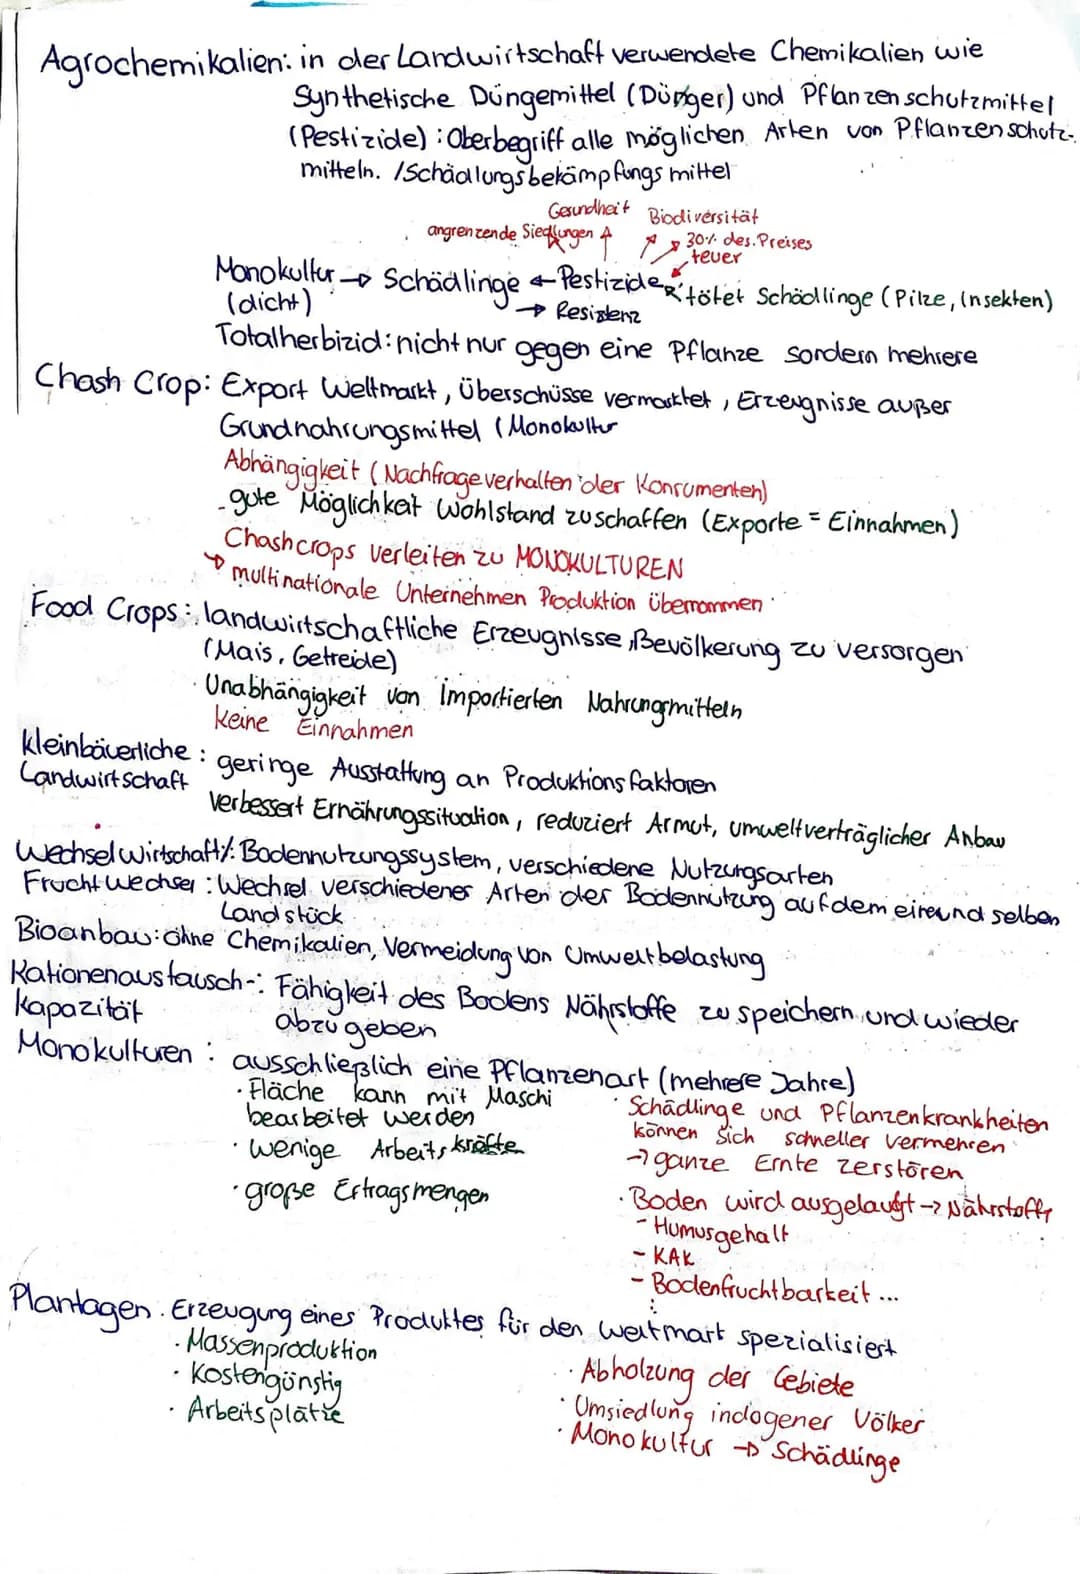 Agrochemikalien: in der Landwirtschaft verwendete Chemikalien wie
Synthetische Düngemittel (Dünger) und Pflanzenschutzmittel
(Pestizide): Oberbegriff alle möglichen Arten von Pflanzenschutz-
mitteln. /Schädlungsbekämpfungsmittel
Gesundheit Biodiversität
angrenzende Siedlungen 30% des Preises
teuer
Monokultur → Schädlinge ← Pestizide tötet Schädlinge (Pilze, Insekten)
(dicht) → Resistenz
Totalherbizid: nicht nur gegen eine Pflanze sondern mehrere
Chash Crop: Export Weltmarkt, Überschüsse vermarktet, Erzeugnisse außer
Grundnahrungsmittel (Monokultur
Abhängigkeit (Nachfrageverhalten der Konsumenten)
- gute Möglichkeit Wohlstand zu schaffen (Exporte = Einnahmen)
Chashcrops verleiten zu MONOKULTUREN
↳ multinationale Unternehmen Produktion übernommen
Food Crops: landwirtschaftliche Erzeugnisse, Bevölkerung zu versorgen
(Mais, Getreide)
· Unabhängigkeit von importierten Nahrungsmitteln
keine Einnahmen
kleinbäuerliche : geringe Ausstattung an Produktionsfaktoren
Landwirtschaft
verbessert Ernährungssituation, reduziert Armut, umweltverträglicher Anbau
Wechselwirtschaft/: Bodennutzungssystem, verschiedene Nutzungsarten
Fruchtwechsel: Wechsel verschiedener Arten der Bodennutzung auf dem ein und selben
Landstück
Bioanbau: ohne Chemikalien, Vermeidung von Umweltbelastung
Kationenaustausch-: Fähigkeit des Bodens Nährstoffe zu speichern und wieder
kapazität abzugeben
Monokulturen: ausschließlich eine Pflanzenart (mehrere Jahre)
· Fläche kann mit Maschi
bearbeitet werden
· wenige Arbeitskräfte
· große Ertragsmengen
· Schädlinge und Pflanzenkrankheiten
können sich schneller vermehren
→ ganze Ernte zerstören
· Boden wird ausgelaugt → Nährstoffe
- Humusgehalt
- KAK
- Bodenfruchtbarkeit ...
Plantagen: Erzeugung eines Produktes für den Weltmart spezialisiert
· Massenproduktion
· Kostengünstig
· Arbeitsplätze
· Abholzung der Gebiete
· Umsiedlung indogener Völker
· Monokultur → Schädlinge